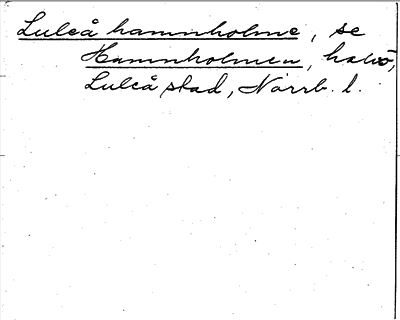 Luleå hamnholme, se
Hamnholmen, halvö,
Luleå stad, Norrb. l.